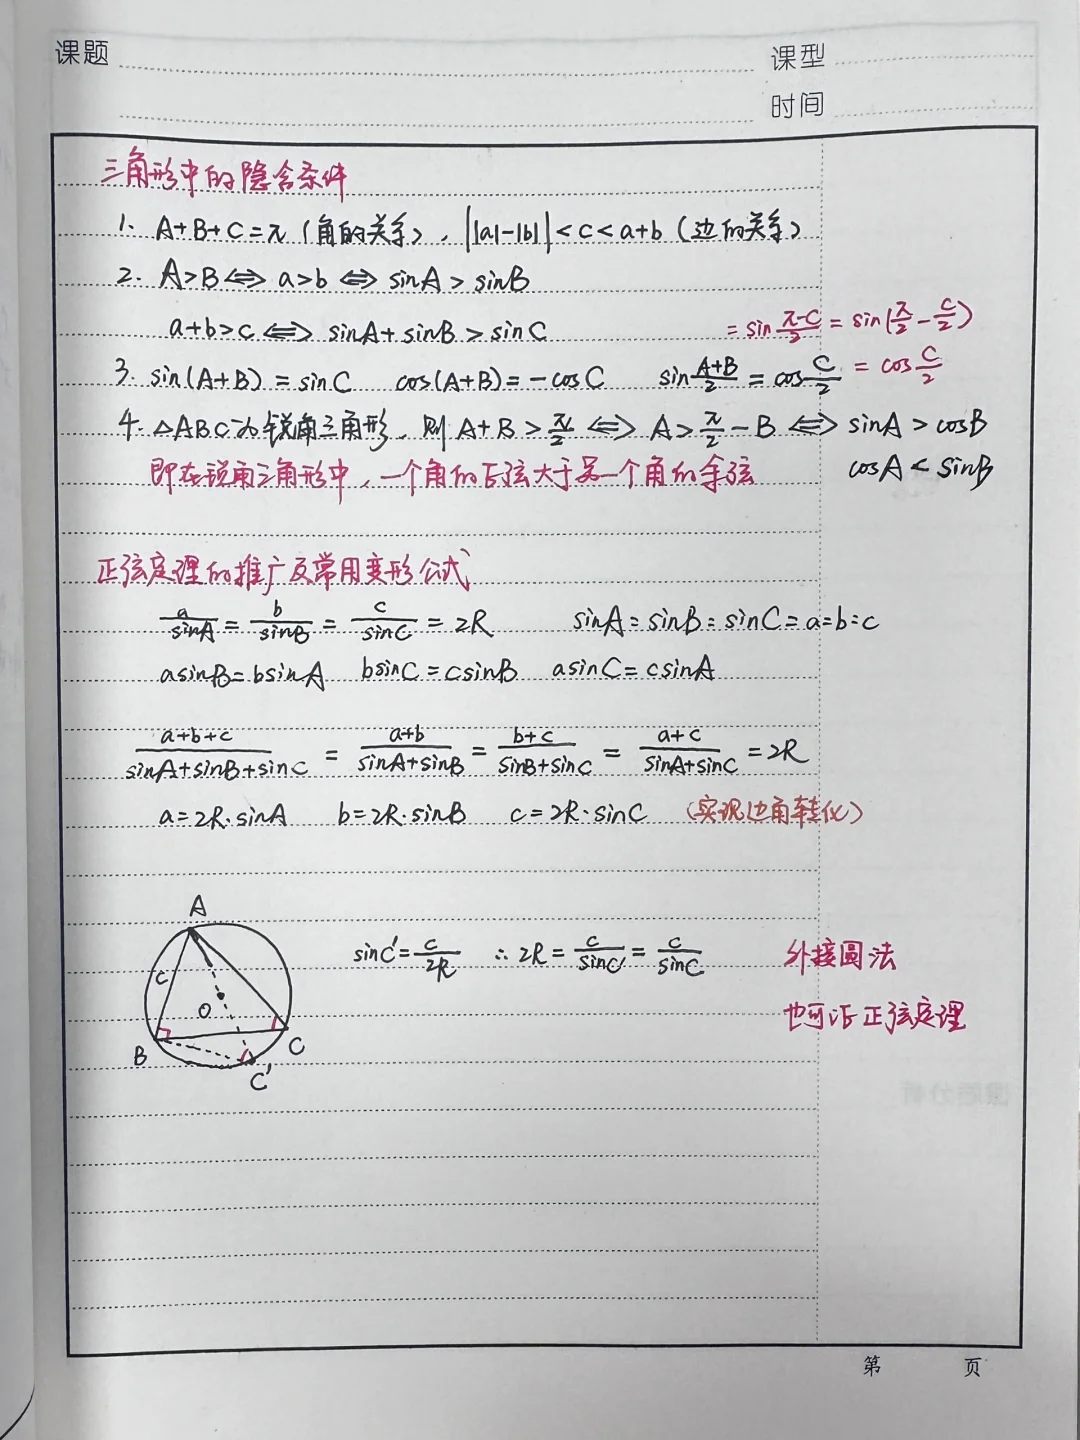 课题
课型
时间
三角形中的隐含条件
1. A+B+C=π（角的关系），||a|-|b||<c<a+b（边的关系）
2. A>B⇔a>b⇔sinA>sinB
a+b>c⇔sinA+sinB>sinC
=sin\frac{π-C}{2}=sin(\frac{π}{2}-\frac{C}{2})
3. sin(A+B)=sinC cos(A+B)=-cosC sin\frac{A+B}{2}=cos\frac{C}{2} =cos\frac{C}{2}
4. △ABC为锐角三角形，则A+B>\frac{π}{2}⇔A>\frac{π}{2}-B⇔sinA>cosB
cosA<sinB
即在锐角三角形中，一个角的正弦大于另一个角的余弦
正弦定理的推广及常用变形公式
\frac{a}{sinA}=\frac{b}{sinB}=\frac{c}{sinC}=2R sinA:sinB:sinC=a:b:c
asinB=bsinA bsinC=csinB asinC=csinA
\frac{a+b+c}{sinA+sinB+sinC}=\frac{a+b}{sinA+sinB}=\frac{b+c}{sinB+sinC}=\frac{a+c}{sinA+sinC}=2R
a=2R·sinA b=2R·sinB c=2R·sinC （实现边角转化）
A
c
O
B
C
C'
sinC'=\frac{c}{2R} ∴2R=\frac{c}{sinC'}=\frac{c}{sinC}
外接圆法
也可证正弦定理
第 页